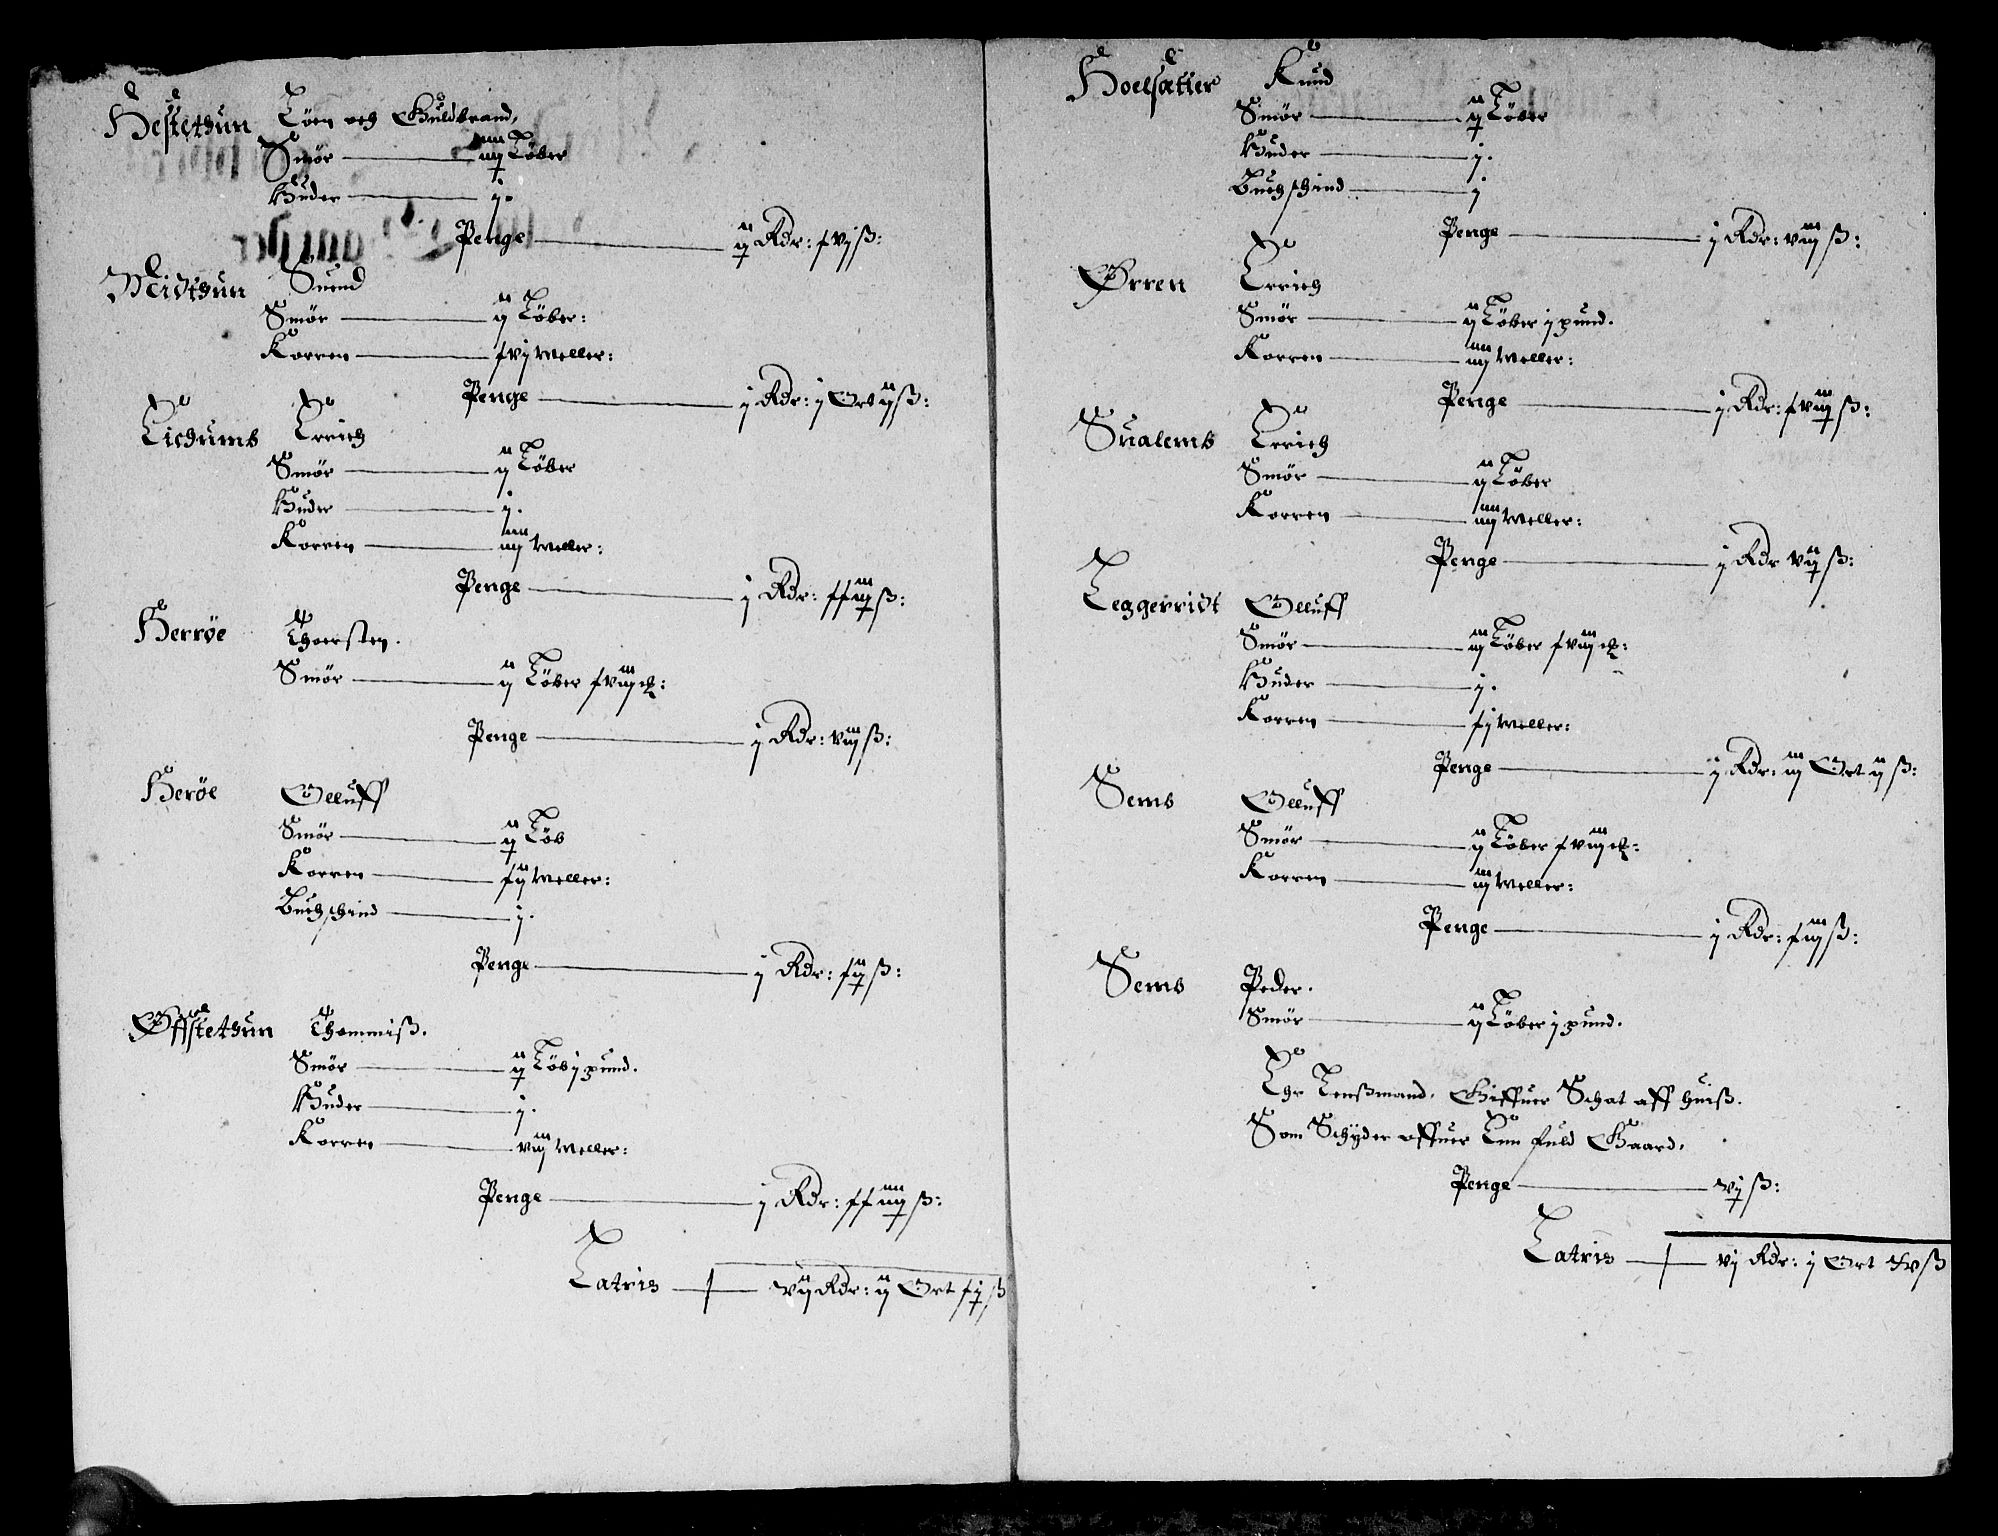 Hestethun Löen och Guldbrand,
Smör iiij Löber
Huder j.
Penge ij Rdr: xvj ß:
Midthun Suend
Smör ij Löber:
Korren xvj Meller:
Penge j Rdr: j Ort ij ß:
Lichums Errich
Smör ij Löber
Huder j.
Korren iiij Meller:
Penge j Rdr: xxiij ß:
Herröe Thorsten.
Smör ij Löber xviij ch:
Penge j Rdr: viij ß:
Heröe Olluff
Smör ij Löb
Korren xij Meller:
Buchschind j.
Penge j Rdr: xij ß:
Øffstethun Thommiß.
Smör ij Löb j pund.
Huder j.
Korren viij Meller:
Penge j Rdr: xxiiij ß:
Latris vij Rdr: ij Ort xj ß
Hoelsætter Knud
Smör ij Löber
Huder j.
Buchschind j
Penge j Rdr: viij ß:
Ørren Errich
Smör ij Löber j pund.
Korren iiij Meller:
Penge j Rdr: xviij ß:
Sualems Errich
Smör ij Löber
Korren iiij Meller:
Penge j Rdr vij ß:
Leggerridt Olluff
Smör iij Löber xviij ch:
Huder j.
Korren xj Meller:
Penge j Rdr: iij Ort ij ß:
Sems Olluff
Smör ij Löber xviij ch:
Korren iij Meller:
Penge j Rdr: xiij ß:
Sems Peder.
Smör ij Löber j pund.
Ehr Lenßmand, Giffuer Schat aff huiß.
Som Schyder offuer Enn fuld Gaard,
Penge vj ß:
Latris vj Rdr: j Ort xv ß